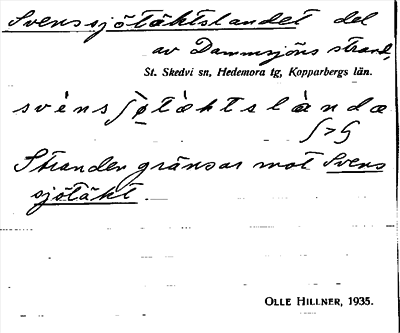 Svenssjötäktslandet del
av Dammsjöns strand,
St. Skedvi sn, Hedemora tg, Kopparbergs län.
svènsʃø̀tàktslàndæ
ʃ>ꞔ
Stranden gränsar mot Svens
sjötäkt.
OLLE HILLNER, 1935.